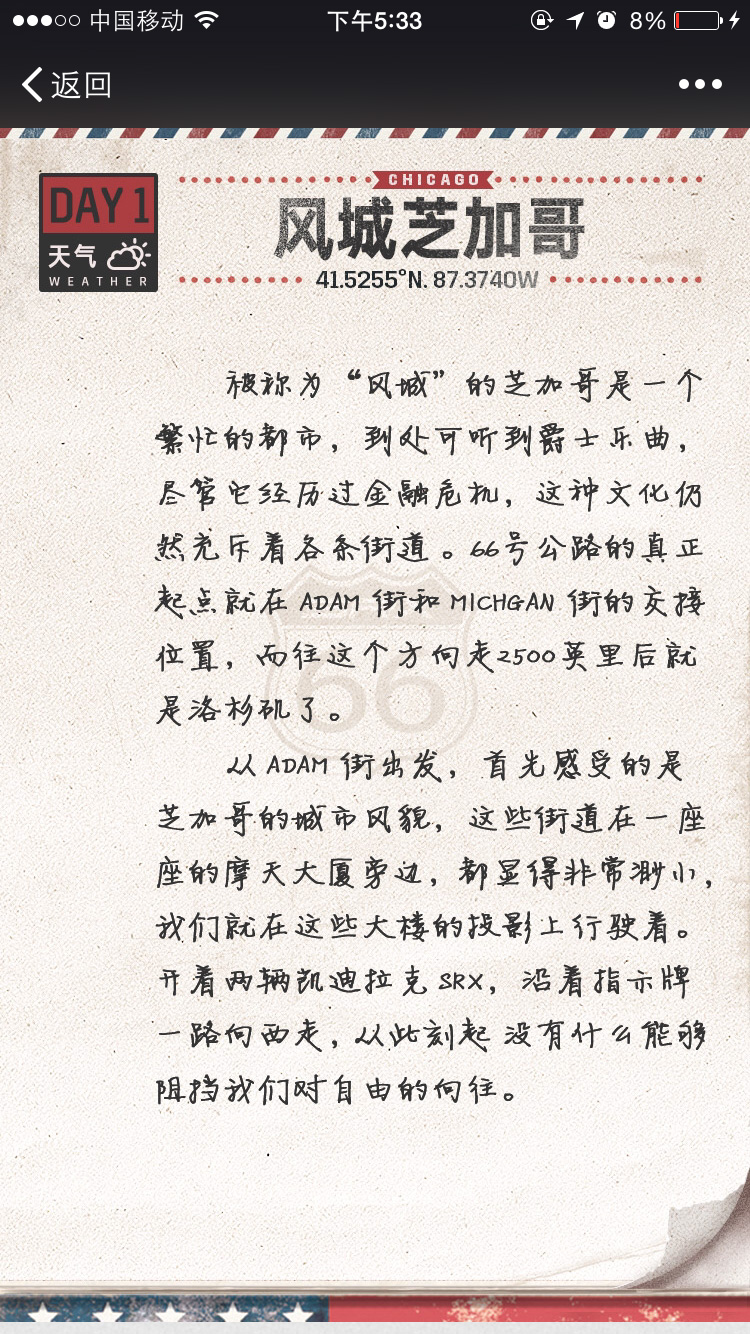 中国移动 下午5:33 8%
返回
CHICAGO
DAY 1
风城芝加哥
天气
WEATHER
41.5255°N. 87.3740W
被称为“风城”的芝加哥是一个
繁忙的都市，到处可听到爵士乐曲，
尽管它经历过金融危机，这种文化仍
然充斥着各条街道。66号公路的真正
起点就在 ADAM 街和 MICHGAN 街的交接
位置，而往这个方向走2500英里后就
是洛杉矶了。
66
从 ADAM 街出发，首先感受的是
芝加哥的城市风貌，这些街道在一座
座的摩天大厦旁边，都显得非常渺小，
我们就在这些大楼的投影上行驶着。
开着两辆凯迪拉克 SRX，沿着指示牌
一路向西走，从此刻起 没有什么能够
阻挡我们对自由的向往。